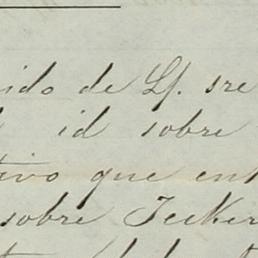 ido de Lf. sre
id sobre
tivo que ent
sobre Tecker